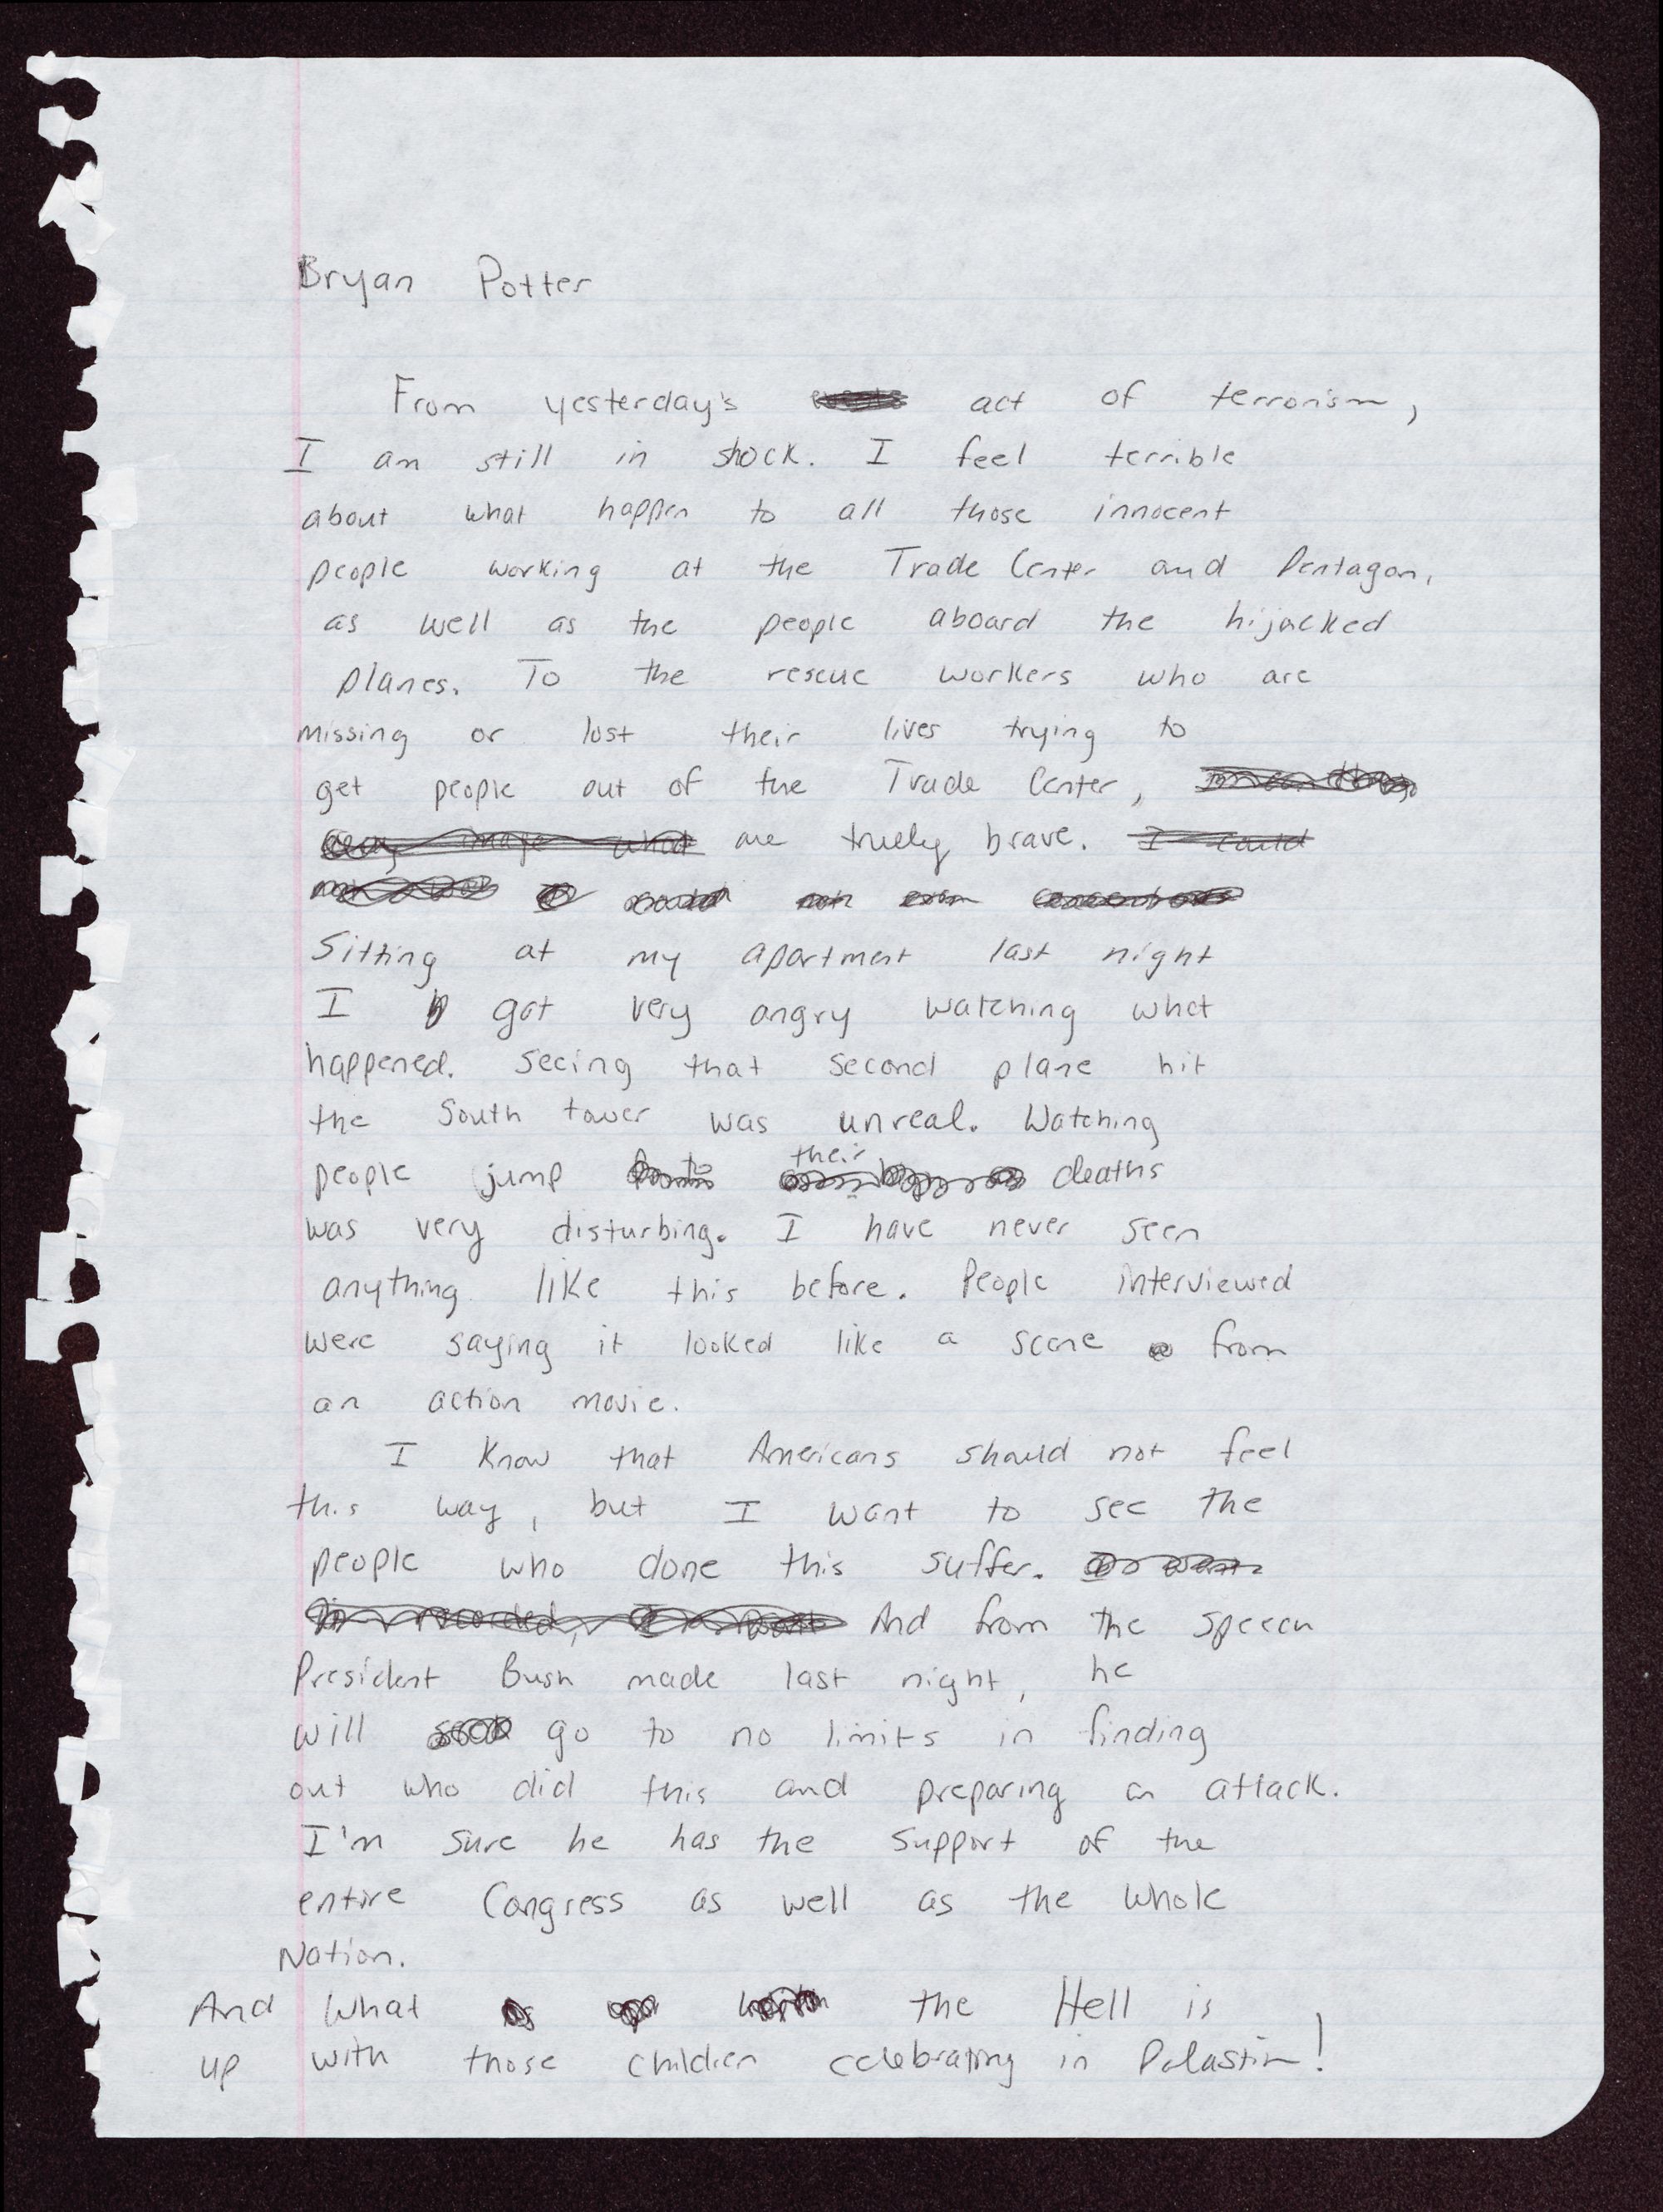 Bryan Potter
From yesterday's act of terrorism,
I am still in shock. I feel terrible
about what happen to all those innocent
people working at the Trade Center and Pentagon,
as well as the people aboard the hijacked
planes. To the rescue workers who are
missing or lost their lives trying to
get people out of the Trade Center,
are truely brave. I could
not even
Sitting at my apartment last night
I got very angry watching what
happened. Seeing that second plane hit
the South tower was unreal. Watching
people jump to their deaths
was very disturbing. I have never seen
anything like this before. People interviewed
were saying it looked like a scene from
an action movie.
I know that Americans should not feel
this way, but I want to see the
people who done this suffer.
And from the speech
President Bush made last night, he
will go to no limits in finding
out who did this and preparing an attack.
I'm sure he has the support of the
entire Congress as well as the whole
Nation.
And what the Hell is
up with those children celebrating in Palastin!